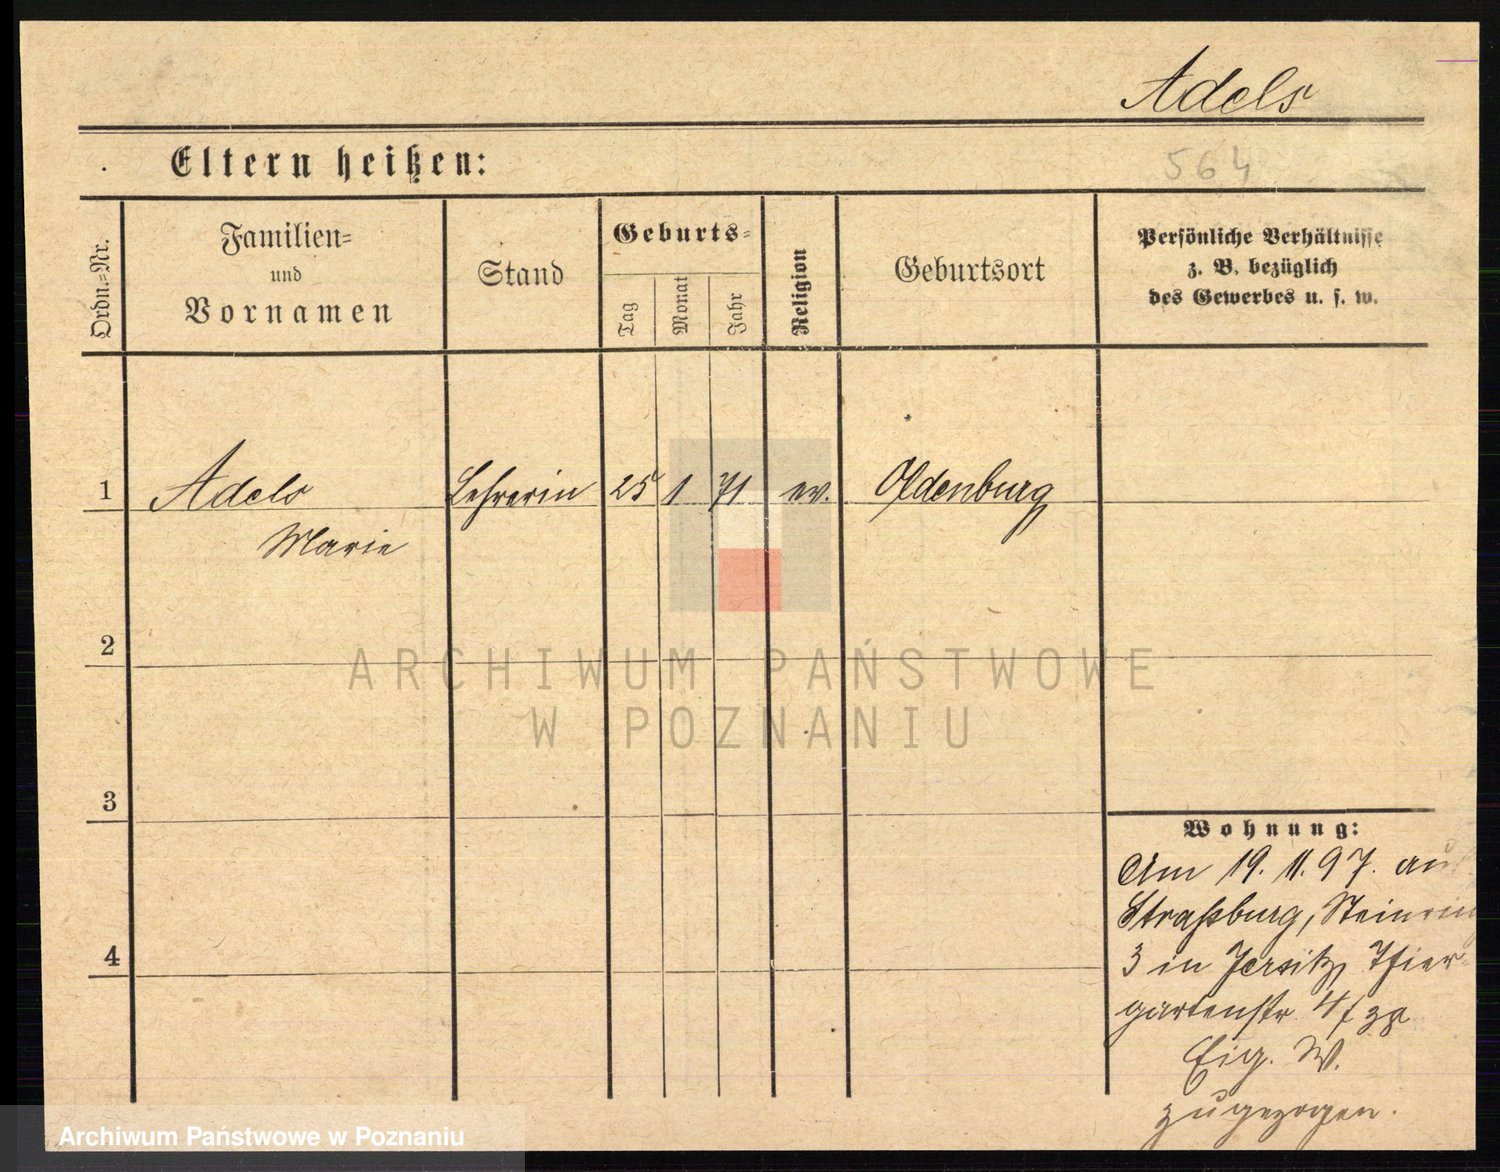 Adels
Eltern heißen:
564
Ordn.=Nr.
Familien=
und
Vornamen
Stand
Geburts=
Tag
Monat
Jahr
Religion
Geburtsort
Persönliche Verhältnisse
z. B. bezüglich
des Gewerbes u. s. w.
1 Adels Lehrerin 25 1 71 ev. Oldenburg
Marie
2
ARCHIWUM PAŃSTWOWE
W POZNANIU
3
Wohnung:
Am 19. 11. 97. aus
Straßburg, Steinring
4
3 in Jersitz, Thier-
gartenstr. 4
Eig. W.
zugezogen.
Archiwum Państwowe w Poznaniu